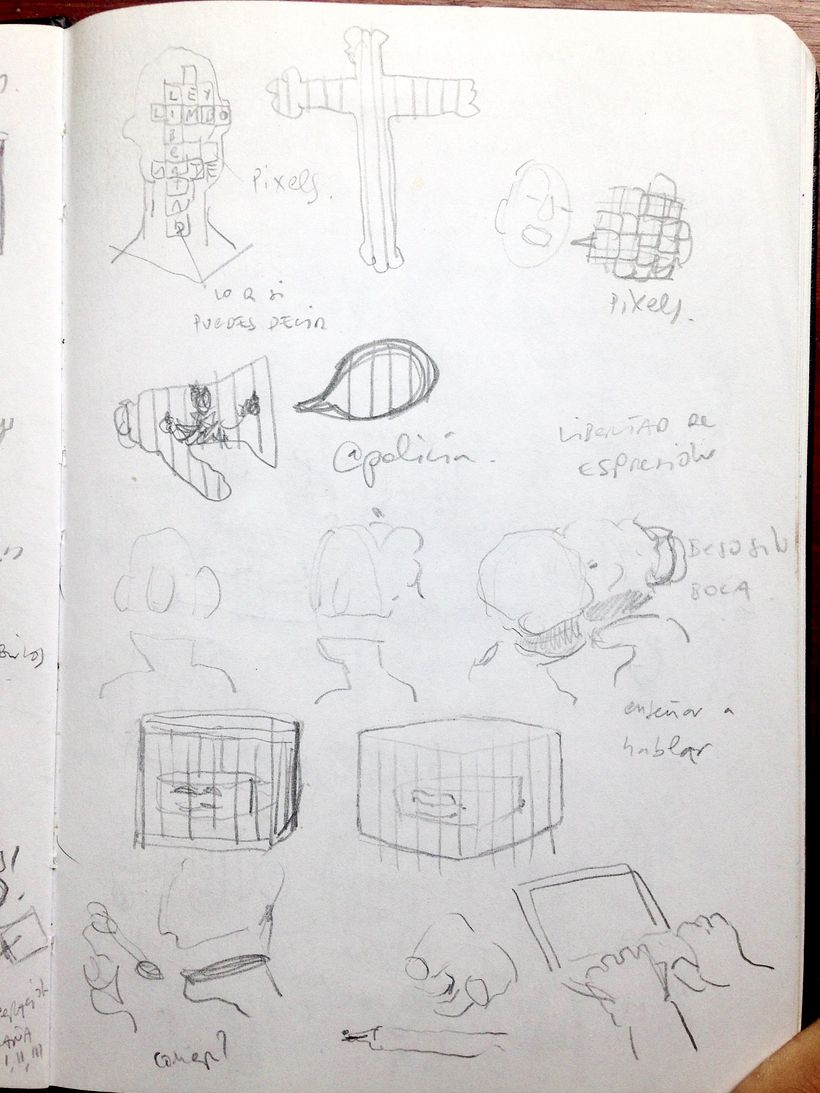 LEY
LIMBO
Pixels.
LO Q SI
PUEDES DECIR
Pixels.
@policía.
LIBERTAD DE
ESPRESIÓN
BESO SIN
BOCA
enseñar a
hablar
comer?